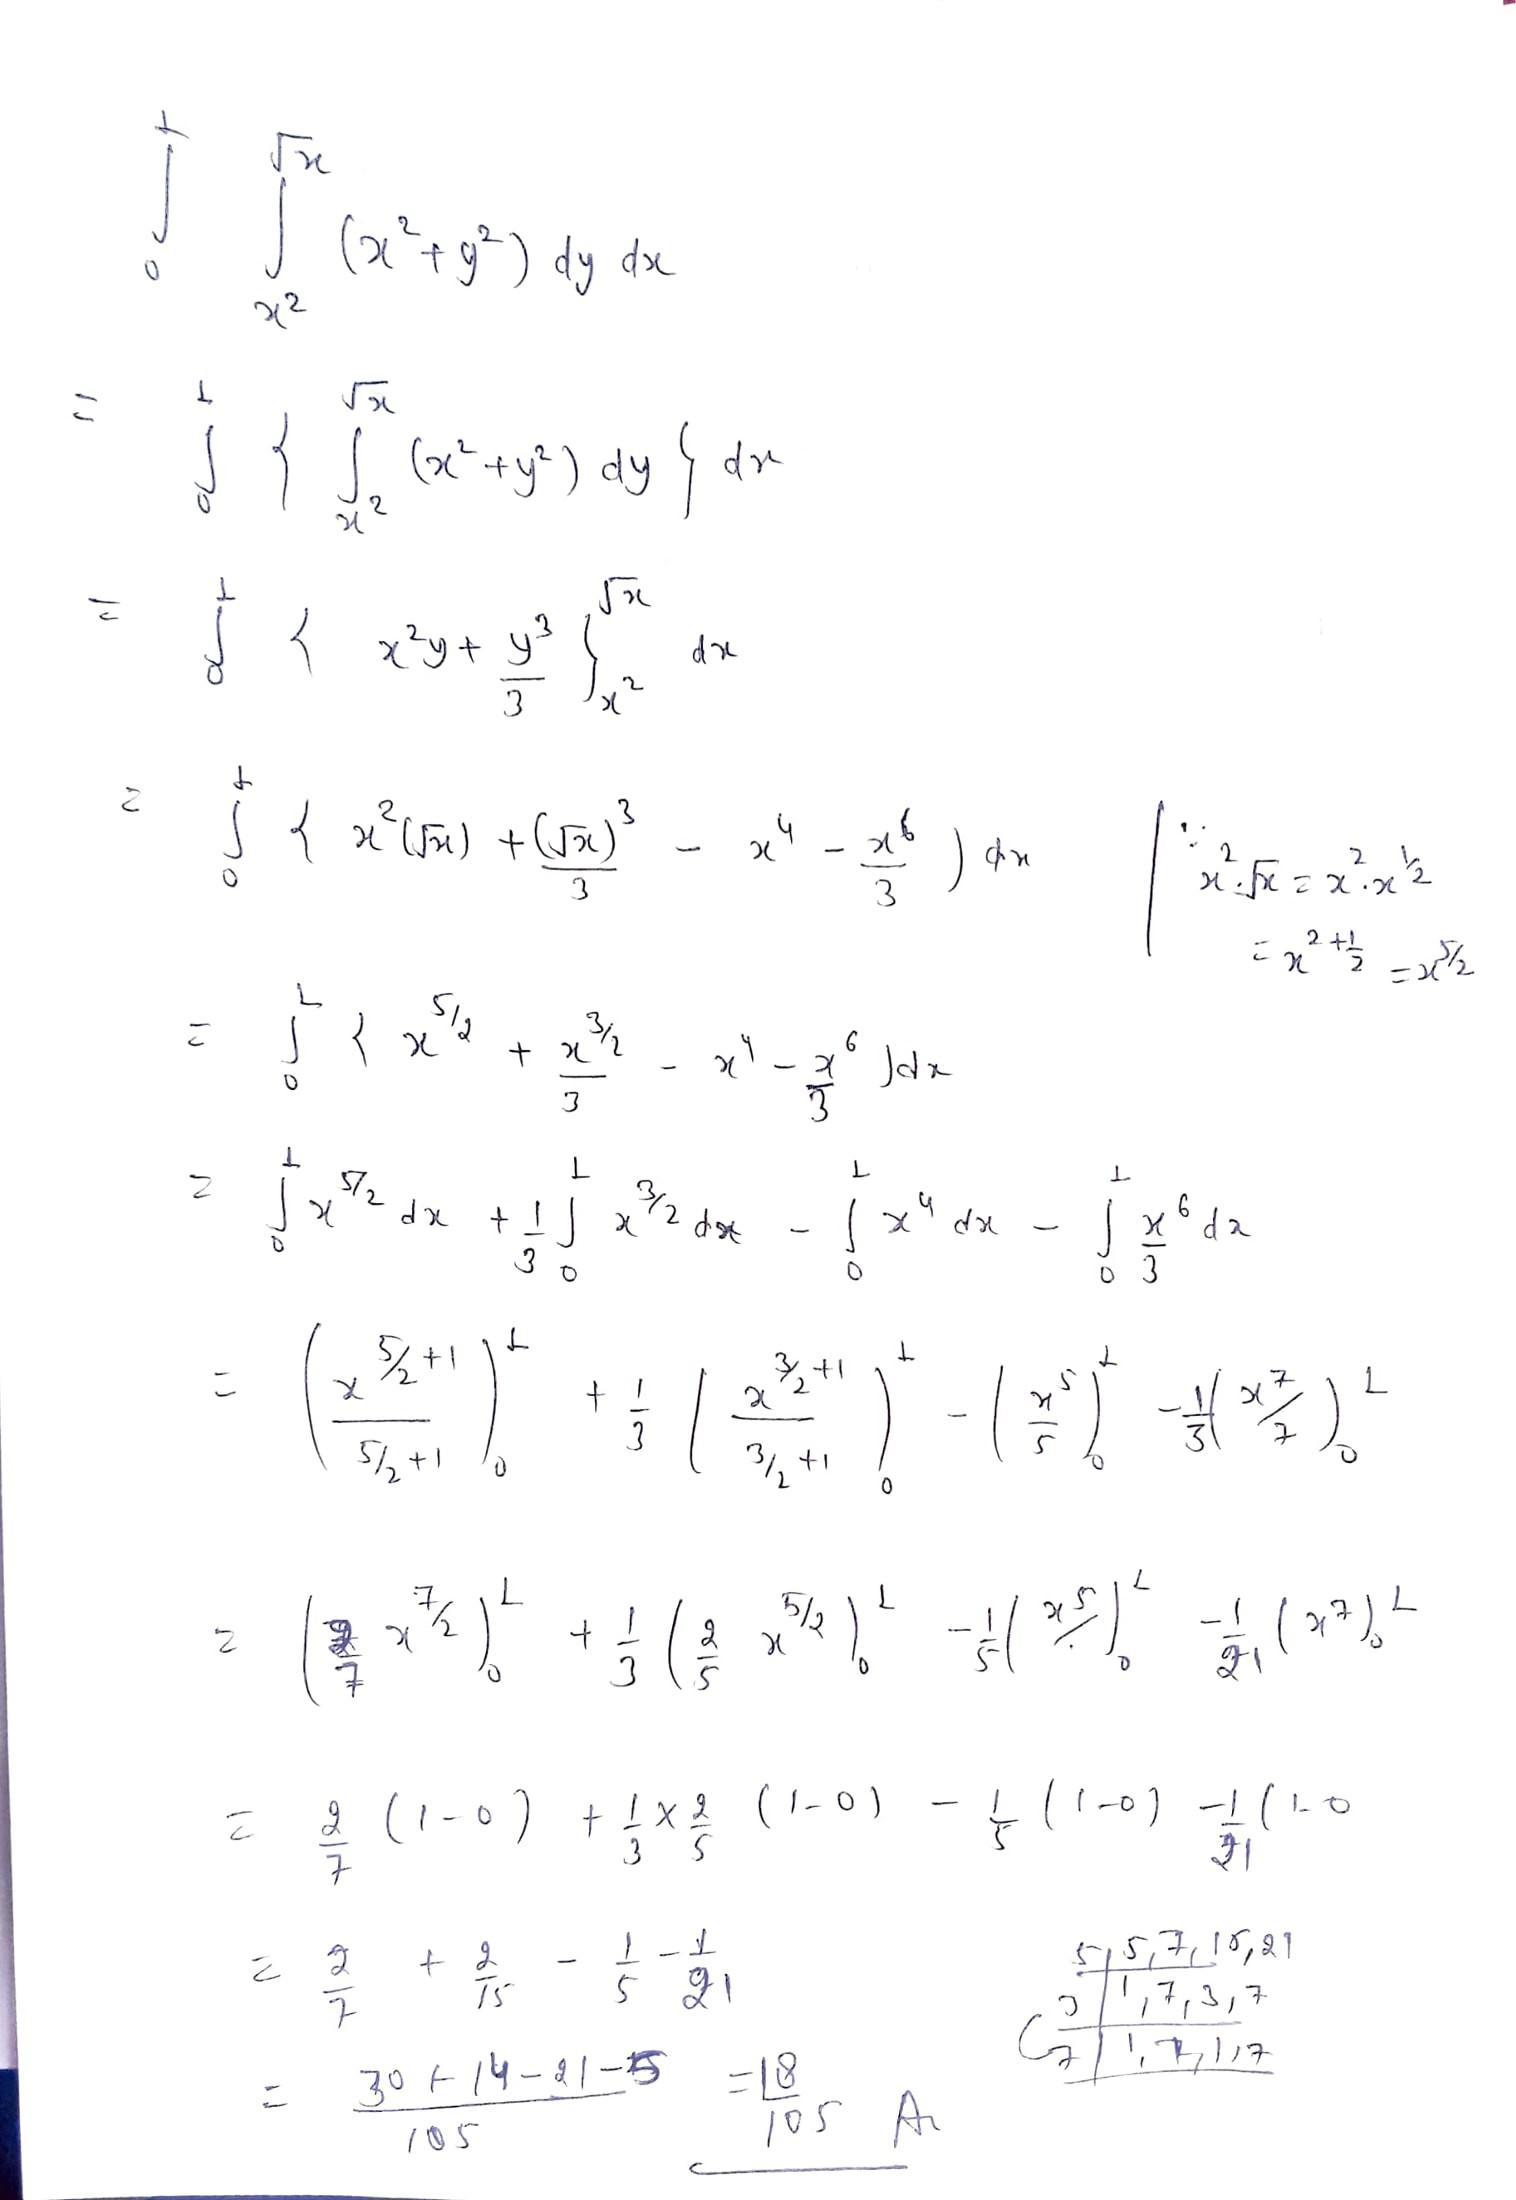 ∫₀¹ ∫_{x²}^{√x} (x²+y²) dy dx
= ∫₀¹ { ∫_{x²}^{√x} (x²+y²) dy } dx
= ∫₀¹ { x²y + y³/3 }_{x²}^{√x} dx
= ∫₀¹ { x²(√x) + (√x)³/3 - x⁴ - x⁶/3 ) dx
∵ x².√x = x².x^{1/2}
= x^{2+1/2} = x^{5/2}
= ∫₀¹ { x^{5/2} + x^{3/2}/3 - x⁴ - x⁶/3 ) dx
= ∫₀¹ x^{5/2} dx + 1/3 ∫₀¹ x^{3/2} dx - ∫₀¹ x⁴ dx - ∫₀¹ x⁶/3 dx
= ( x^{5/2+1} / 5/2+1 )₀¹ + 1/3 ( x^{3/2+1} / 3/2+1 )₀¹ - ( x⁵/5 )₀¹ - 1/3 ( x⁷/7 )₀¹
= ( 2/7 x^{7/2} )₀¹ + 1/3 ( 2/5 x^{5/2} )₀¹ - 1/5 ( x⁵ )₀¹ - 1/21 ( x⁷ )₀¹
= 2/7 (1-0) + 1/3 × 2/5 (1-0) - 1/5 (1-0) - 1/21 (1-0
= 2/7 + 2/15 - 1/5 - 1/21
5 | 5, 7, 15, 21
3 | 1, 7, 3, 7
7 | 1, 7, 1, 7
= 30 + 14 - 21 - 5 / 105 = 18/105